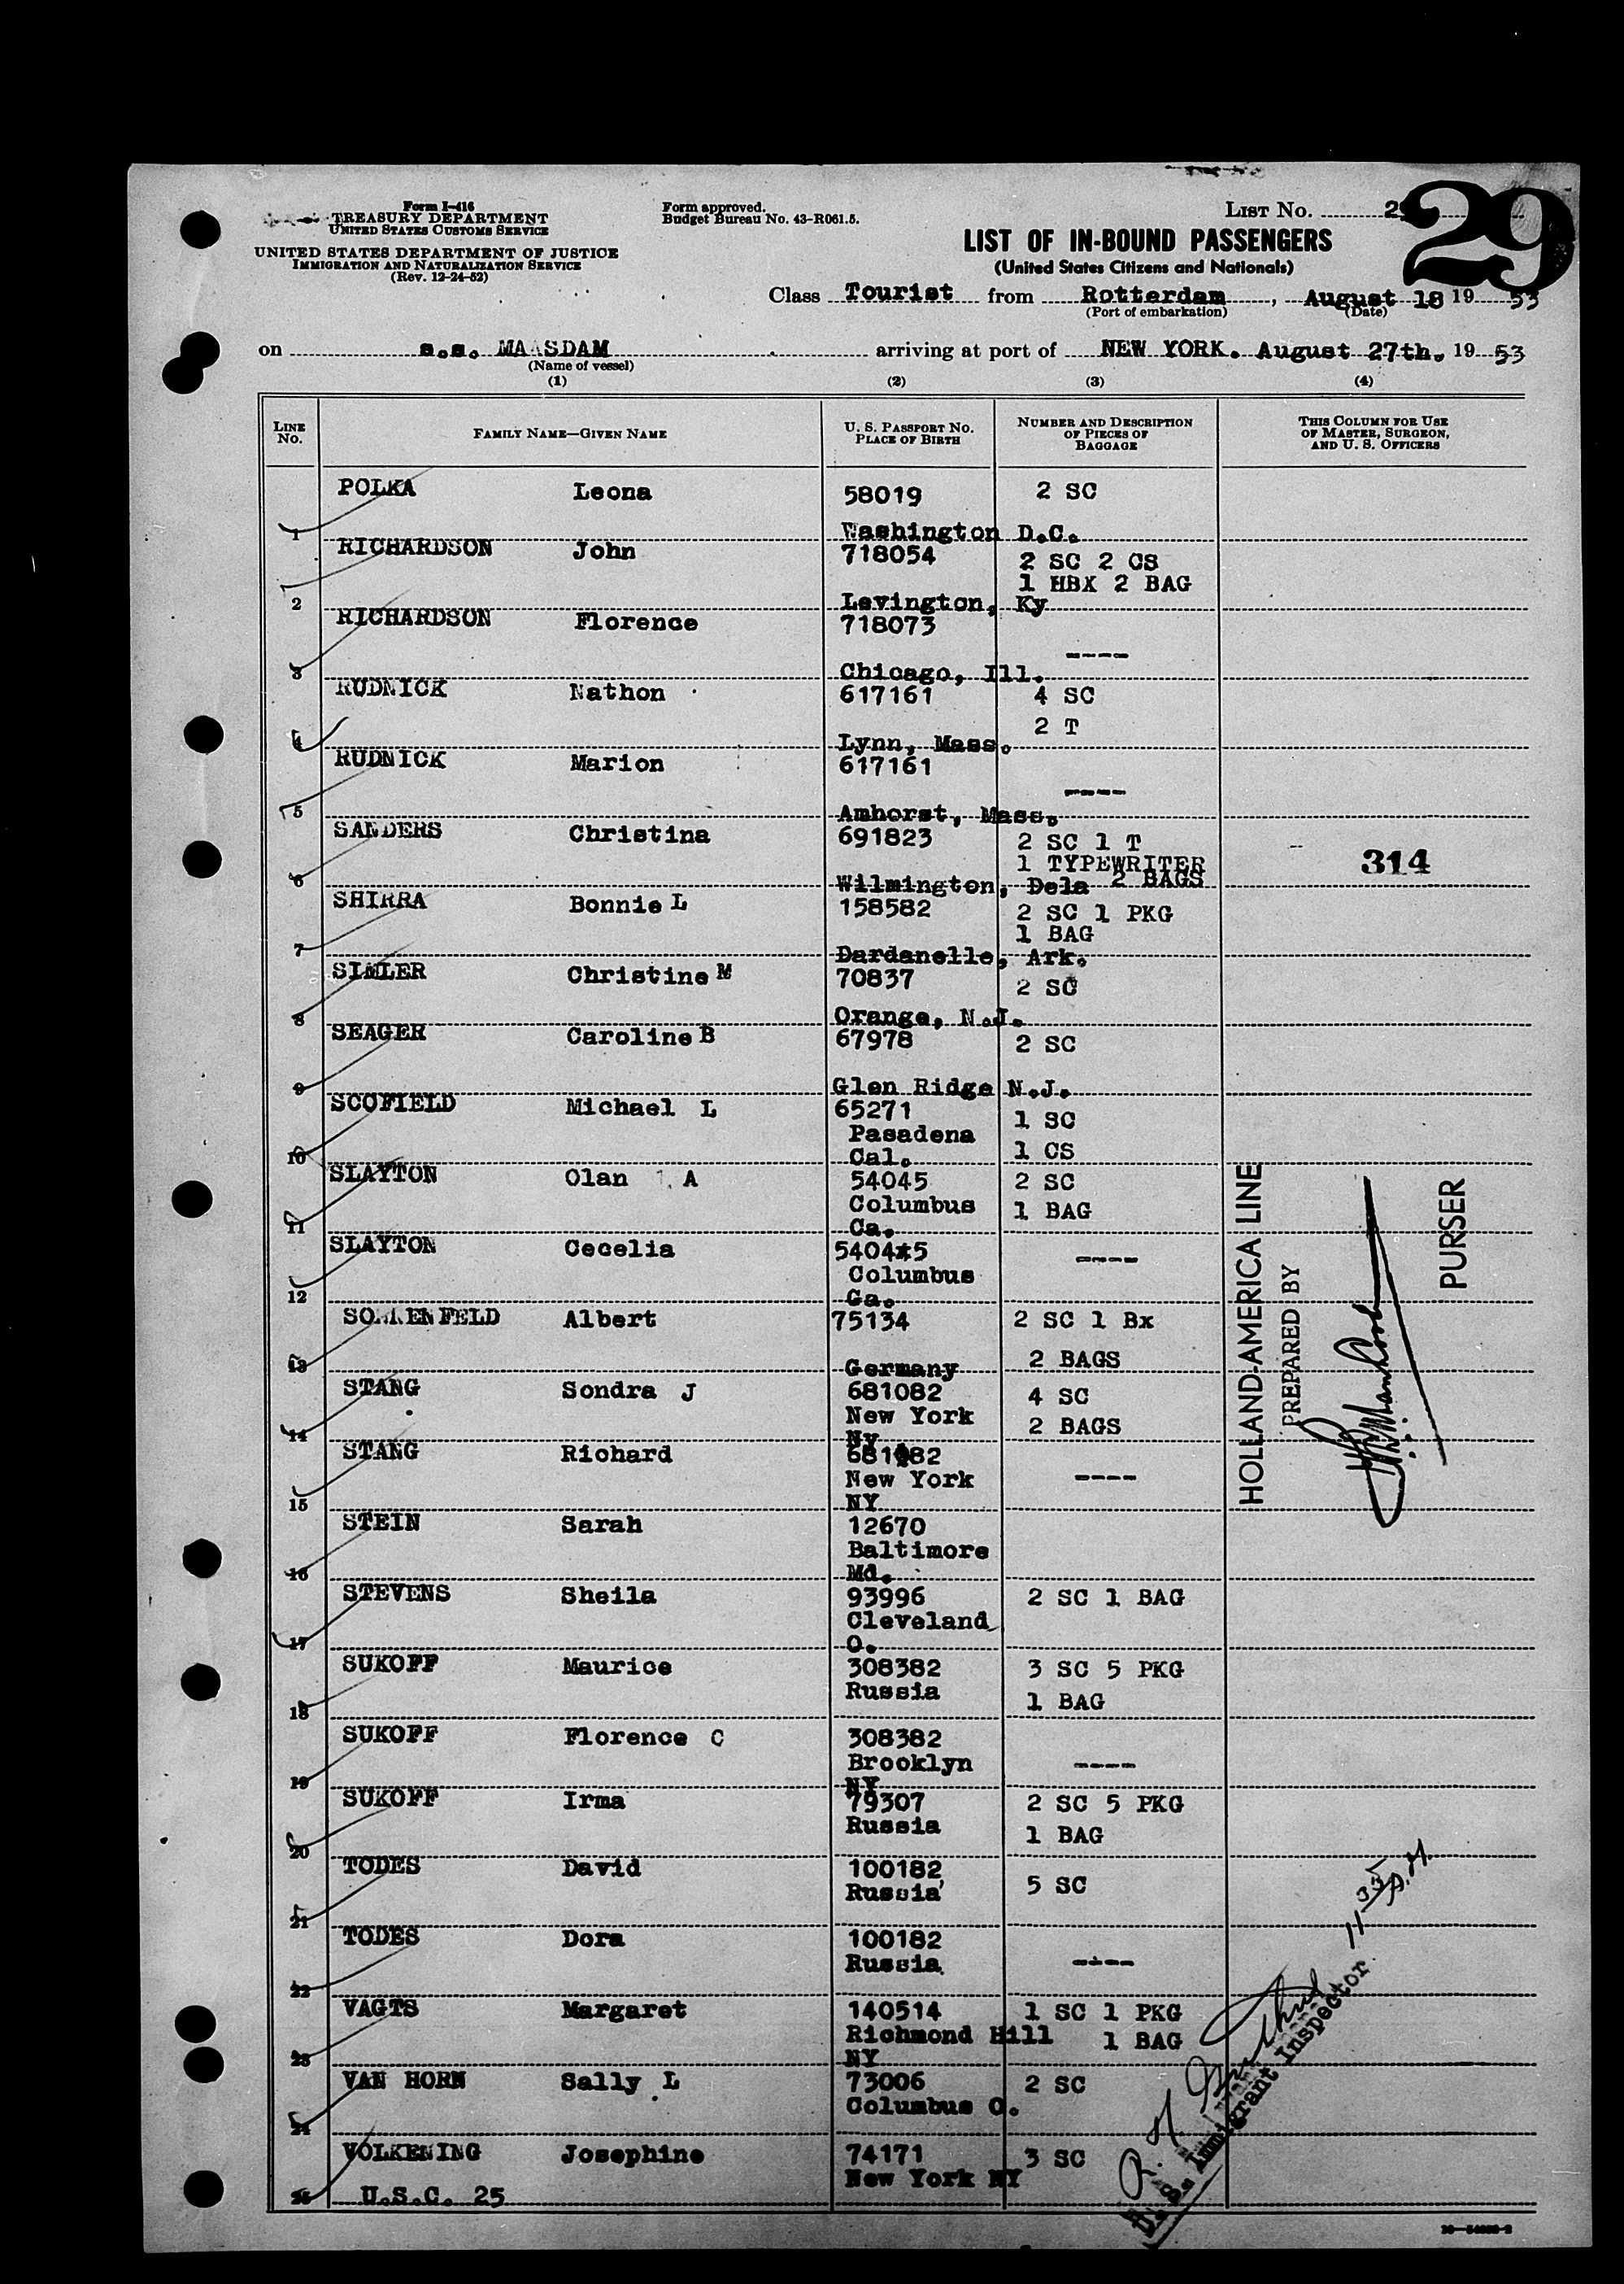 Form I-416
TREASURY DEPARTMENT
UNITED STATES CUSTOMS SERVICE
UNITED STATES DEPARTMENT OF JUSTICE
IMMIGRATION AND NATURALIZATION SERVICE
(Rev. 12-24-52)
Form approved.
Budget Bureau No. 43-R061.5.
LIST NO. 29
29
LIST OF IN-BOUND PASSENGERS
(United States Citizens and Nationals)
Class Tourist from Rotterdam, August 18 1953
(Port of embarkation) (Date)
on s.s. MAASDAM arriving at port of NEW YORK. August 27th. 1953
(Name of vessel)
(1) (2) (3) (4)
LINE NO. FAMILY NAME—GIVEN NAME U. S. PASSPORT NO. PLACE OF BIRTH NUMBER AND DESCRIPTION OF PIECES OF BAGGAGE THIS COLUMN FOR USE OF MASTER, SURGEON, AND U. S. OFFICERS
POLKA Leona 58019 2 SC
1 Washington D.C.
RICHARDSON John 718054 2 SC 2 CS
1 HBX 2 BAG
2 Levington, Ky
RICHARDSON Florence 718073
----
3 Chicago, Ill.
RUDNICK Nathon 617161 4 SC
2 T
4 Lynn, Mass.
RUDNICK Marion 617161
----
5 Amhorst, Mass.
SANDERS Christina 691823 2 SC 1 T
1 TYPEWRITER 314
6 Wilmington, Dela 2 BAGS
SHIRRA Bonnie L 158582 2 SC 1 PKG
1 BAG
7 Dardanelle, Ark.
SIMLER Christine M 70837 2 SC
8 Orange, N.J.
SEAGER Caroline B 67978 2 SC
9 Glen Ridge N.J.
SCOFIELD Michael L 65271 1 SC
Pasadena
10 Cal. 1 CS
SLAYTON Olan A 54045 2 SC
Columbus 1 BAG
11 Ca.
SLAYTON Cecelia 54045 ----
Columbus
12 Ga.
SONNENFELD Albert 75134 2 SC 1 Bx
2 BAGS
13 Germany
STANG Sondra J 681082 4 SC
New York 2 BAGS
14 Ny
STANG Richard 681082
New York ----
15 NY
STEIN Sarah 12670
Baltimore
16 Md.
STEVENS Sheila 93996 2 SC 1 BAG
Cleveland
17 O.
SUKOFF Maurice 308382 3 SC 5 PKG
Russia 1 BAG
18
SUKOFF Florence C 308382
Brooklyn ----
19 NY
SUKOFF Irma 79307 2 SC 5 PKG
Russia 1 BAG
20
TODES David 100182 5 SC
Russia
21
TODES Dora 100182
Russia ----
22
VAGTS Margaret 140514 1 SC 1 PKG
Richmond Hill 1 BAG
23 NY
VAN HORN Sally L 73006 2 SC
Columbus O.
24
VOLKENING Josephine 74171 3 SC
New York NY
25 U.S.C. 25
HOLLAND-AMERICA LINE
PREPARED BY
PURSER
11 35
U.S. Immigrant Inspector